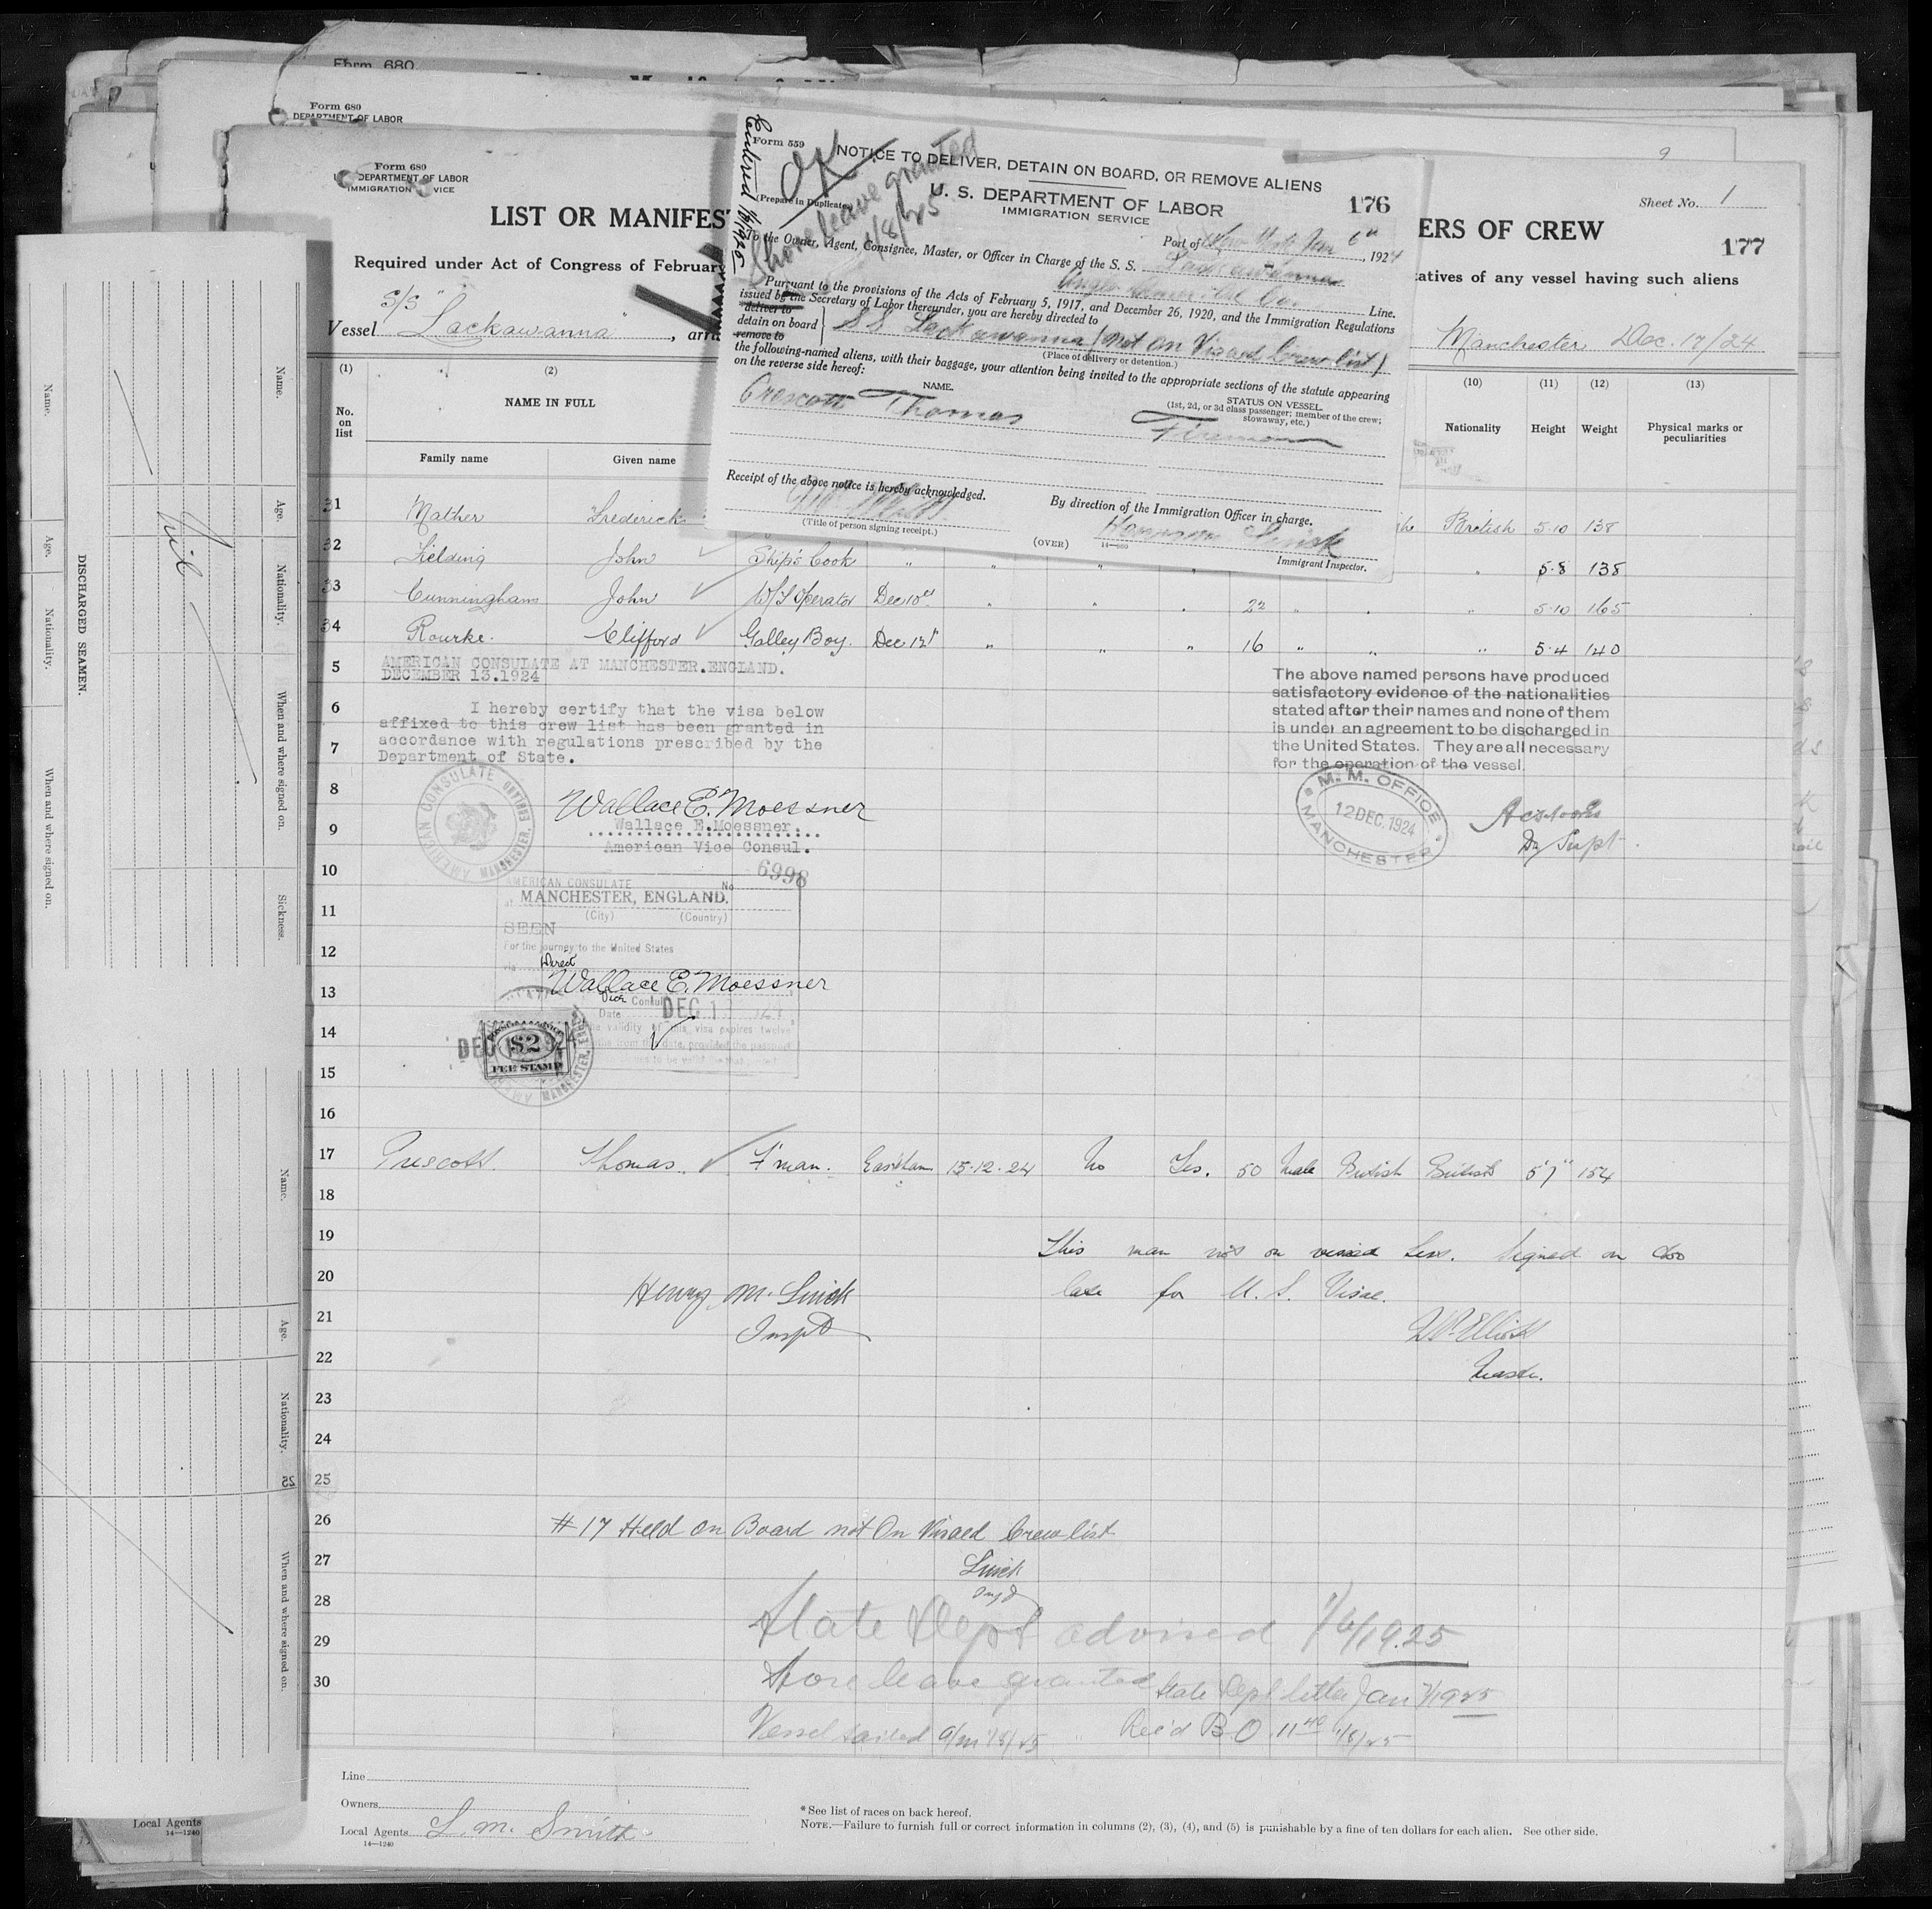 Form 680.
Form 680
DEPARTMENT OF LABOR
Form 680
U. S. DEPARTMENT OF LABOR
IMMIGRATION SERVICE
LIST OR MANIFEST
ERS OF CREW
Sheet No. 1
9
177
Required under Act of Congress of February
tatives of any vessel having such aliens
Vessel S/S "Lackawanna", arri
Manchester Dec. 17/24
Form 559
NOTICE TO DELIVER, DETAIN ON BOARD, OR REMOVE ALIENS
OK
Shore leave granted
1/8/25
Entered
(Prepare in Duplicate)
U. S. DEPARTMENT OF LABOR
IMMIGRATION SERVICE
176
Port of New York Jan 6th, 1924
To the Owner, Agent, Consignee, Master, or Officer in Charge of the S. S. Lackawanna
Anglo Amer. Oil Co. Line.
Pursuant to the provisions of the Acts of February 5, 1917, and December 26, 1920, and the Immigration Regulations
issued by the Secretary of Labor thereunder, you are hereby directed to
deliver to
detain on board
remove to
S S Lackawanna (not on Visaed Crew list)
(Place of delivery or detention.)
the following-named aliens, with their baggage, your attention being invited to the appropriate sections of the statute appearing
on the reverse side hereof:
NAME.
STATUS ON VESSEL.
(1st, 2d, or 3d class passenger; member of the crew;
stowaway, etc.)
Prescott Thomas Fireman
Receipt of the above notice is hereby acknowledged.
(Title of person signing receipt.)
By direction of the Immigration Officer in charge.
(OVER)
14—600
Immigrant Inspector.
(1) (2) (10) (11) (12) (13)
No. on list
NAME IN FULL
Family name Given name
Nationality Height Weight Physical marks or peculiarities
31 Mather Frederick British 5·10 138
32 Fielding John Ship's Cook " " " " " 5·8 138
33 Cunningham John W/T Operator Dec 10th " " " 22 " " " 5·10 165
34 Rourke. Clifford Galley Boy. Dec 12th " " " 16 " " " 5·4 140
5 AMERICAN CONSULATE AT MANCHESTER.ENGLAND.
DECEMBER 13.1924
6 I hereby certify that the visa below
affixed to this crew list has been granted in
7 accordance with regulations prescribed by the
Department of State.
The above named persons have produced
satisfactory evidence of the nationalities
stated after their names and none of them
is under an agreement to be discharged in
the United States. They are all necessary
for the operation of the vessel.
8 AMERICAN CONSULATE MANCHESTER, ENGLAND
Wallace E. Moessner
9 Wallace E.Moessner.
American Vice Consul.
M. M. OFFICE
12 DEC. 1924
MANCHESTER
Dy Supt.
10 AMERICAN CONSULATE No 6998
11 at MANCHESTER, ENGLAND.
(City) (Country)
SEEN
12 For the journey to the United States
via Direct
13 Wallace E. Moessner
Vice Consul
Date DEC 1
14 the validity of this visa expires twelve
months from this date, provided the passport
continues to be valid
$2
FEE STAMP
15
16
17 Prescott. Thomas. F'man. Eastham 15·12·24 No Yes. 50 Male British British 5'7" 154
18
19 This man not on visaed list. Signed on too
20 late for U. S. Visae.
Henry M. Linick
21 Inspt
W. Elliott
22 Master.
23
24
25
26 #17 Held on Board not On Visaed Crew list
27 Linick
Inspt
28 State Dept advised 1/6/1925
29
30 Shore leave granted State Dept letter Jan 7/1925
Vessel sailed a/m 1/8/25 Rec'd B.O. 11 40 1/8/25
Line
Owners
Local Agents L. M. Smith
14—1240
*See list of races on back hereof.
NOTE.—Failure to furnish full or correct information in columns (2), (3), (4), and (5) is punishable by a fine of ten dollars for each alien. See other side.
Local Agents
14—1240
DISCHARGED SEAMEN.
Name. Age. Nationality. When and where signed on.
Name. Age. Nationality. When and where signed on. Sickness.
Nil
Name. Age. Nationality. When and where signed on.
25